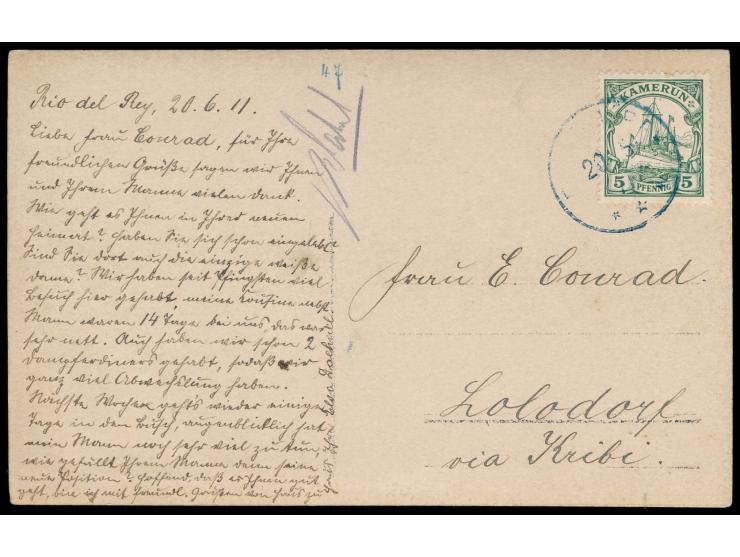 Rio del Rey, 20.6.11.
Liebe Frau Conrad, für Ihre
freundlichen Grüße sagen wir Ihnen
und Ihrem Manne vielen Dank.
Wie geht es Ihnen in Ihrer neuen
Heimat? Haben Sie sich schon eingelebt?
Sind Sie dort auch die einzige weiße
Dame? Wir haben seit Pfingsten viel
Besuch hier gehabt, meine Cousine nebst
Mann waren 14 Tage bei uns das war
sehr nett. Auch haben wir schon 2
Dampferdiners gehabt, sodaß wir
ganz viel Abwechslung haben.
Nächste Woche geht's wieder einige
Tage in den Busch, augenblicklich hat
mein Mann noch sehr viel zu tun,
wie gefällt Ihrem Manne denn seine
neue Position? Hoffend, daß es Ihnen gut
geht, bin ich mit freundl. Grüßen von Haus zu
Haus Ihre Elsa
47
KAMERUN
5 PFENNIG 5
Frau E. Conrad.
Lolodorf
via Kribi.